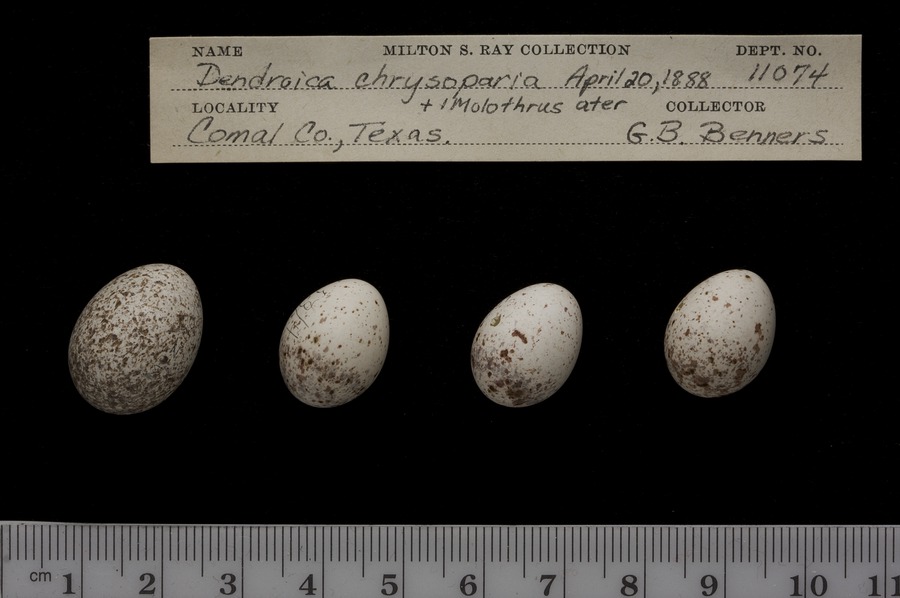 NAME MILTON S. RAY COLLECTION DEPT. NO.
Dendroica chrysoparia April 20, 1888 11074
LOCALITY + 1 Molothrus ater COLLECTOR
Comal Co., Texas. G.B. Benners
cm 1 2 3 4 5 6 7 8 9 10 11